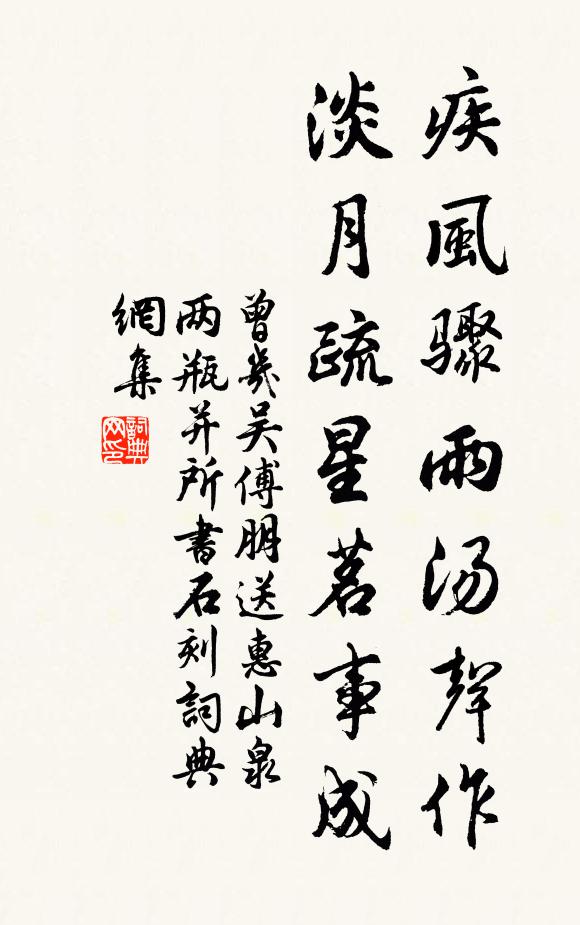 疾風驟雨汤聲作
淡月疏星茗事成
曾幾吴傅朋送惠山泉
两瓶并所書石刻詞典
網集
詞典
网印